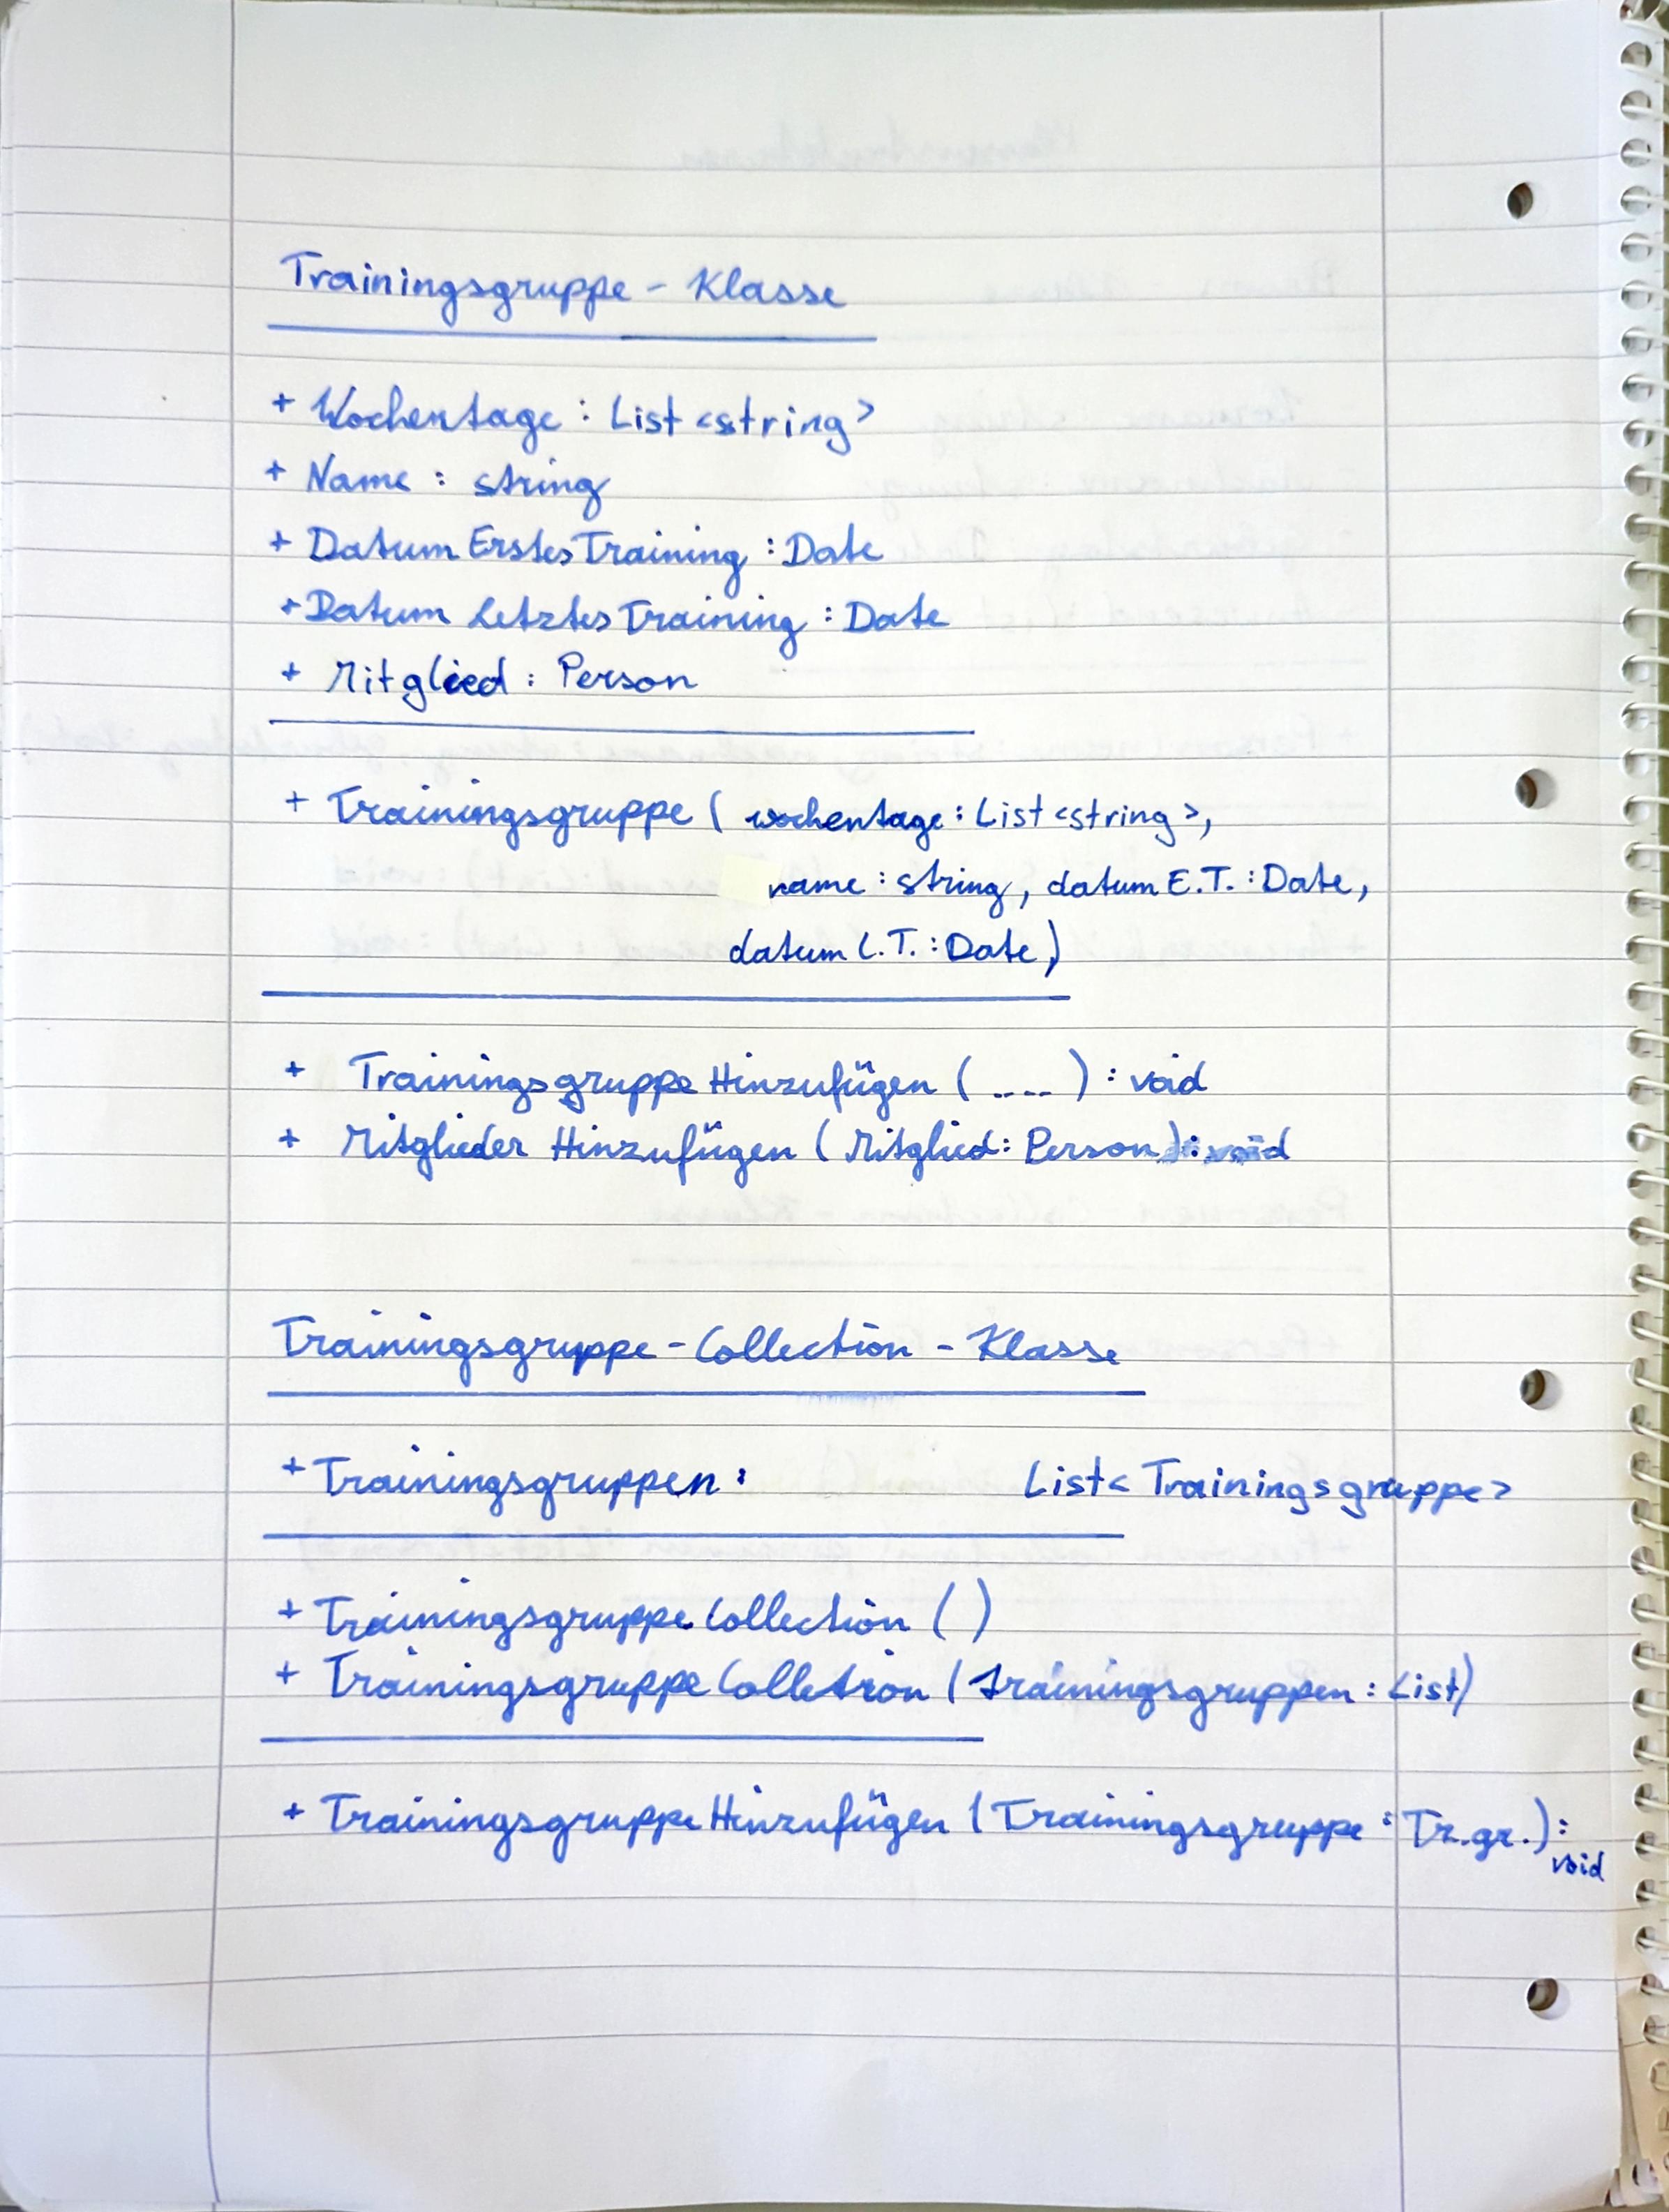 Trainingsgruppe - Klasse
+ Wochentage : List <string>
+ Name : string
+ Datum Erstes Training : Date
+ Datum Letztes Training : Date
+ Mitglied : Person
+ Trainingsgruppe ( wochentage : List <string>,
name : string, datum E.T. : Date,
datum L.T. : Date,)
+ Trainingsgruppe Hinzufügen ( ---- ) : void
+ Mitglieder Hinzufügen ( Mitglied : Person ) : void
Trainingsgruppe - Collection - Klasse
+ Trainingsgruppen : List < Trainingsgruppe >
+ Trainingsgruppe Collection ( )
+ Trainingsgruppe Colletion ( trainingsgruppen : List)
+ Trainingsgruppe Hinzufügen ( Trainingsgruppe : Tr.gr. ) :
void